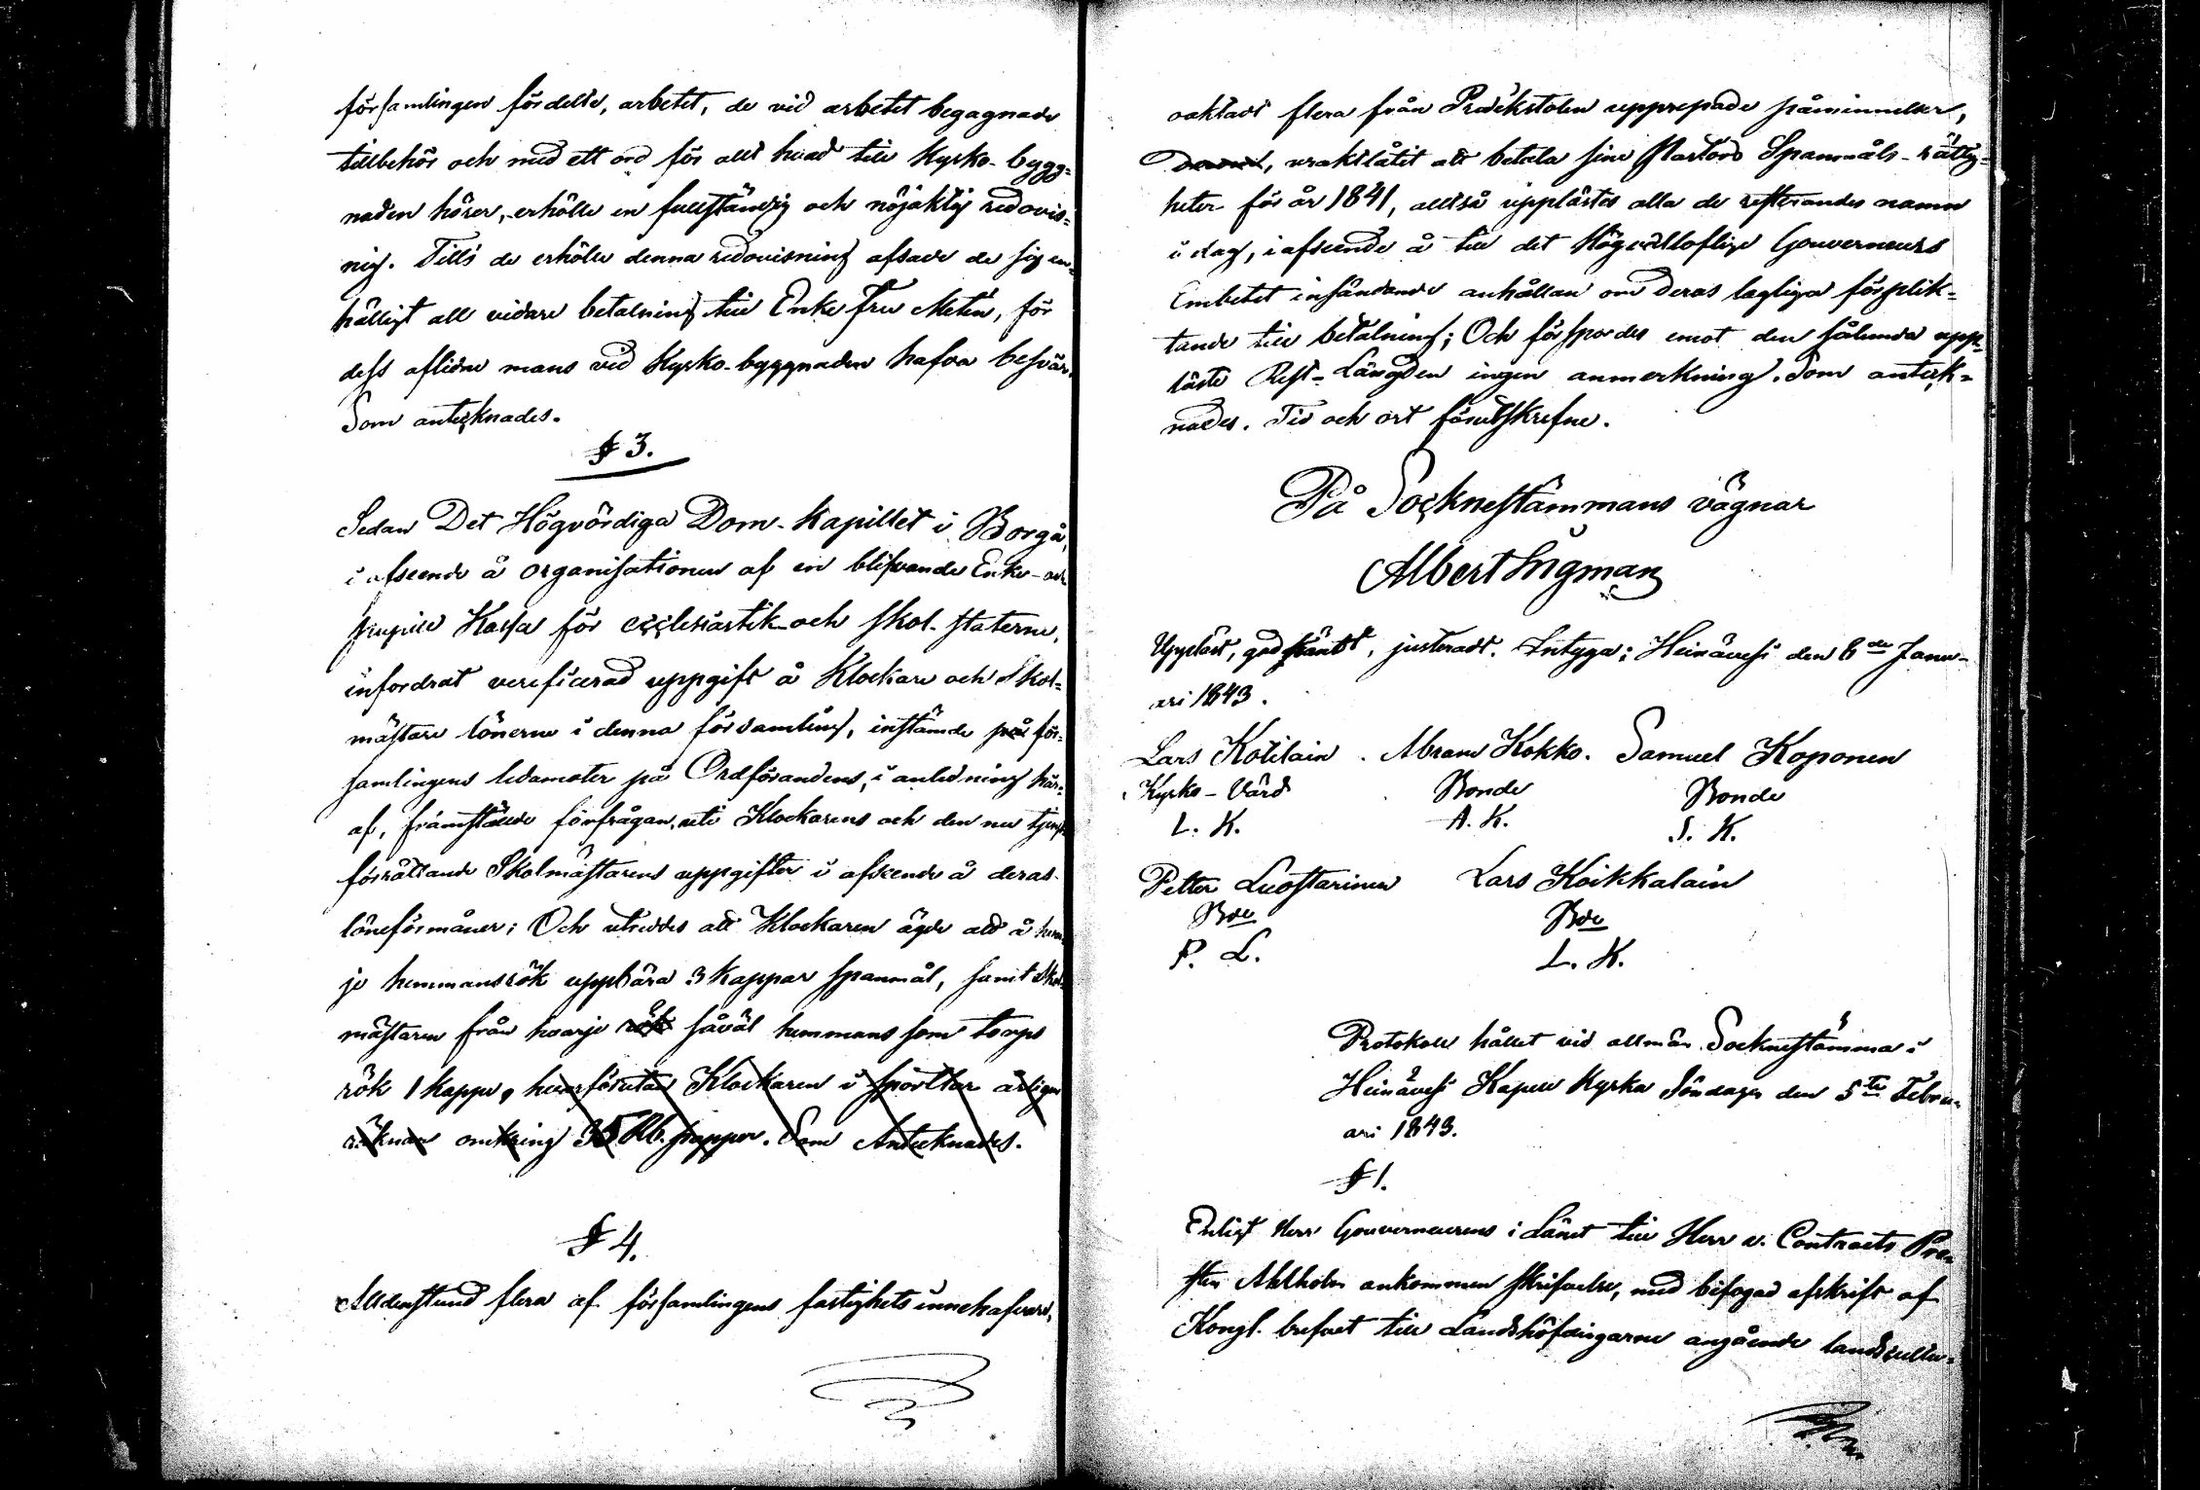 församlingen fördelte, arbetet, de vid arbetet begagnade
tillbehör och med ett ord för allt hvad till Kyrko-bygg=
naden hörer, erhölle en fullständig och nöjaktig redovis=
nig. Tills de erhölle denna redovisning afsade de sig en=
hälligt all vidare betalning till Enke Fru Metén, för
dess aflidne mans vid Kyrko-byggnaden hafva besvär.
Som antecknades.
§ 3.
Sedan Det Högvördiga Dom-Kapitlet i Borgå,
i afseende å organisationen af en blifvande Enke- och
pupill Kassa för ecclesiastik- och skol-staterne,
infordrat verificerad uppgift å Klockare och Skol=
mästare lönerne i denna församling, instämde för=
samlingens ledamoter på Ordförandens, i anledning här=
af, framställde förfrågan, uti Klockarens och den nu tjenst
förrättande Skolmästarens uppgifter i afseende å deras
löneförmåner; Och utreddes att Klockaren ägde att å hvar
je hemmansrök uppbära 3 kappar spanmål, samt Skol
mästaren från hvarje rök såväl hemmans som torps
rök 1 kappe, hvarförutan Klockaren i sportlar årligen
räknar omkring 35 Rb. papper. Som Antecknades.
§ 4.
Alldenstund flera af församlingens fastighets innehafvare,
oaktadt flera från Prædikstolen upprepade påminnelser,
uraktlåtit att betala sine Pastors Spanmåls-rättig=
heter för år 1841, alltså upplästes alla de resterandes namn
i dag, i afseende å till det Högvällofliga Gouverneurs
Embetet insändande anhållan om deras lagliga förplik=
tande till betalning; Och förspordes emot den sålunda upp=
läste Rest-Längden ingen anmerkning. Som anteck=
nades. Tid och ort förutskrefne.
På Sockneståmmans vägnar
Albert Ingman
Uppläst, godkändt, justeradt. Intyga; Heinävesi den 6de Janu-
ari 1843.
Lars Kotilain . Abram Kokko. Samuel Koponen
Kyrko-Värd Bonde Bonde
L. K. A. K. S. K.
Petter Luostarinen Lars Koikkalain
Bde Bde
P. L. L. K.
Protokoll hållet vid allmän Socknestämma i
Heinävesi Kapell Kyrka Söndagen den 5te Febru-
ari 1843.
§ 1.
Enligt Herr Gouverneurens i Länet till Herr v. Contracts Pro-
sten Ahlholm ankommen skrifvelse, med bifogad afskrift af
Kongl. brefvet till Landshöfdingarne angående landscultu=